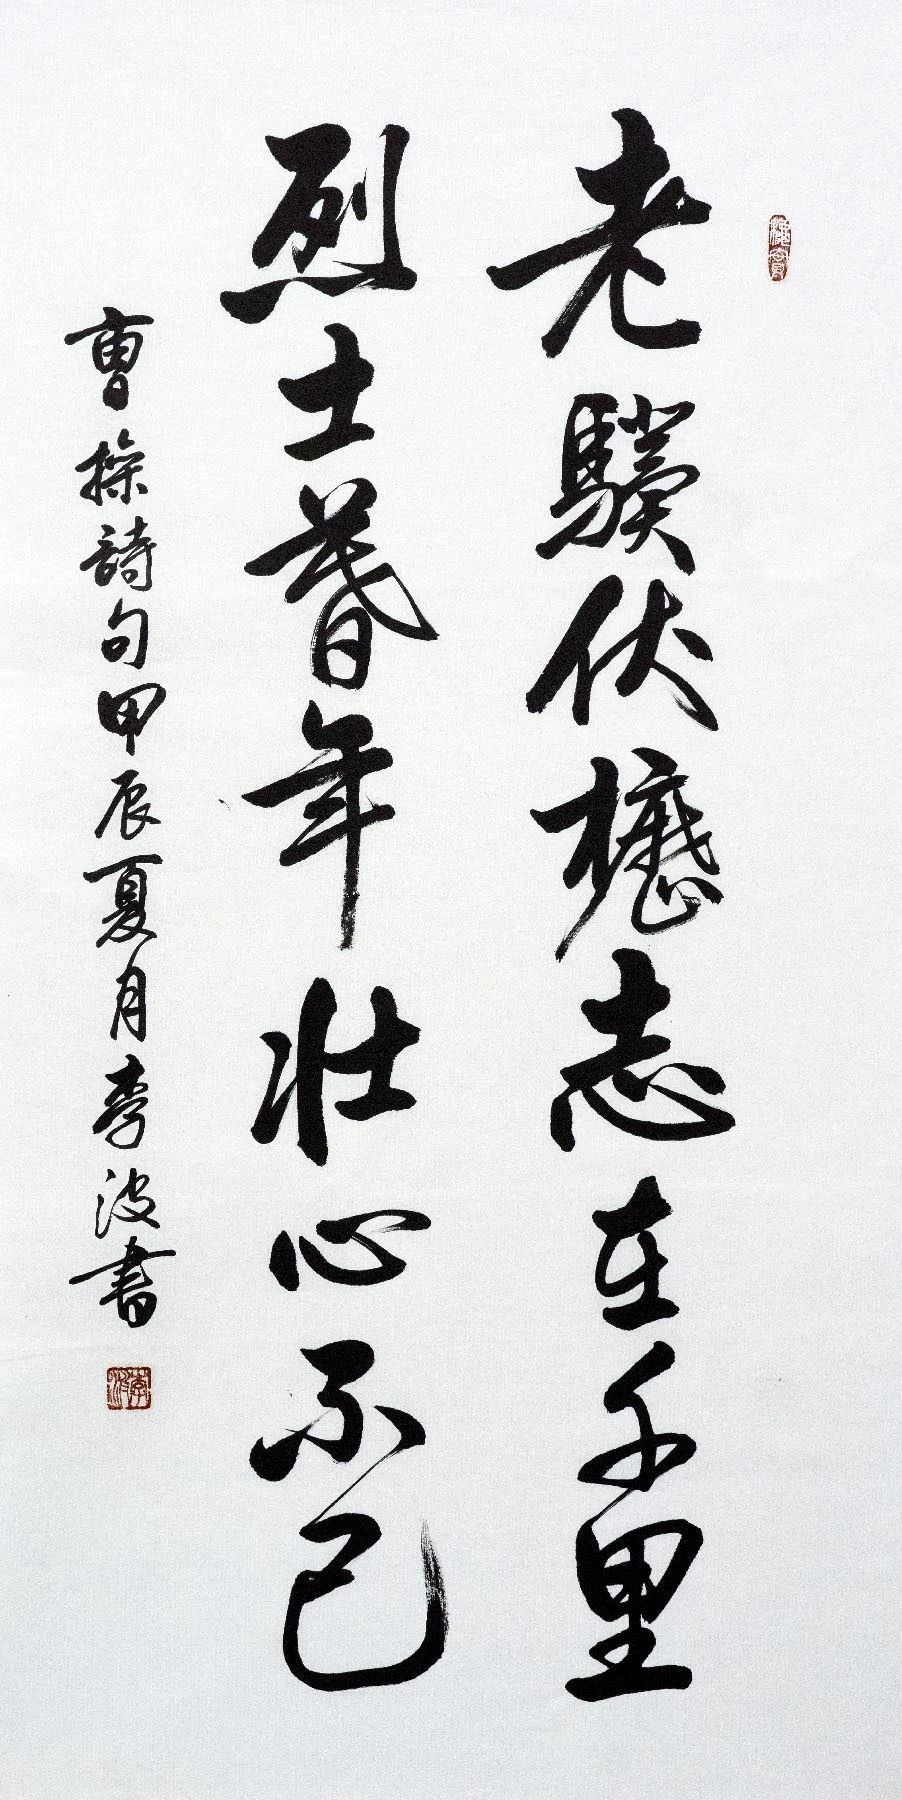 老驥伏櫪志在千里
烈士暮年壯心不已
曹操詩句甲辰夏月李波書
李波